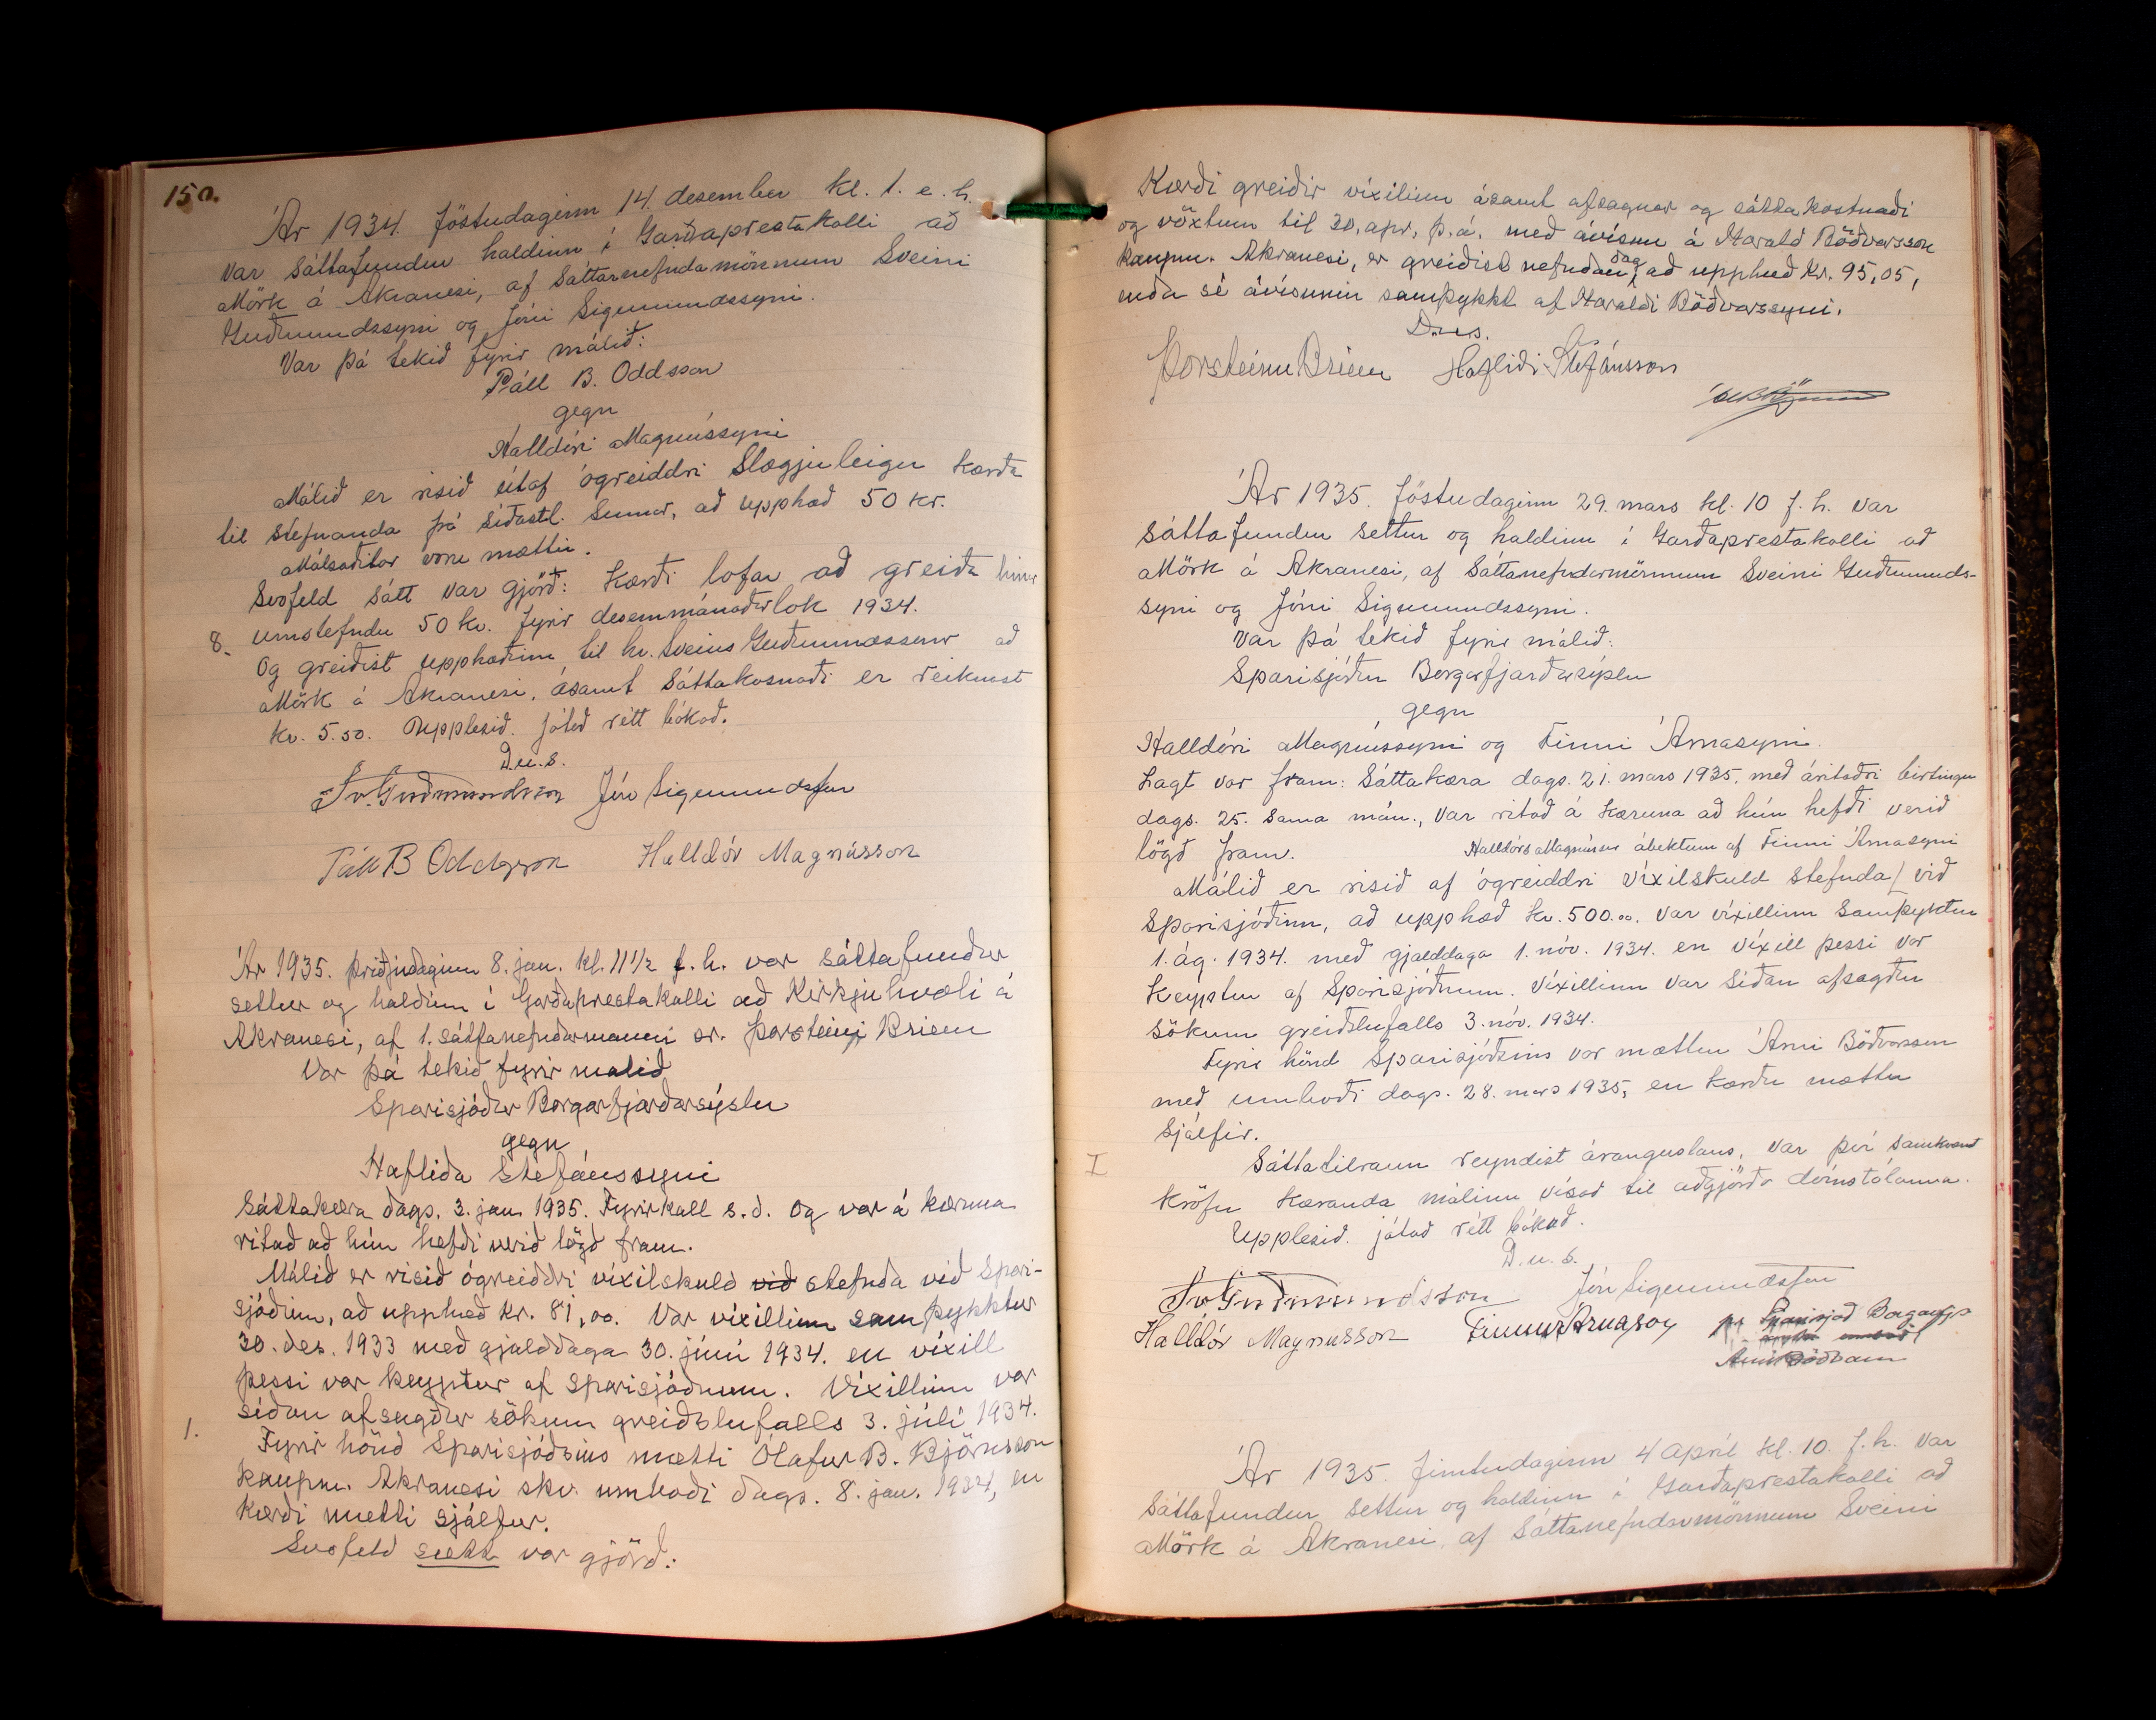 150.
Ár 1934. föstudaginn 14. desember kl. 1. e. h.
var sáttafundur haldinn í Garðaprestakalli að
Mörk á Akranesi, af sáttanefndamönnum Sveini
Guðmundssyni og Jóni Sigmundssyni.
Var þá tekið fyrir málið:
Páll B. Oddsson
gegn
Halldóri Magnússyni
Málið er risið útaf ógreiddri slægjuleigu kærða
til stefnanda frá síðastl. sumar, að upphæð 50 kr.
Málsaðilar voru mættir.
Svofeld sátt var gjörð: Kærði lofar að greiða hina
8. umstefndu 50 kr. fyrir desemmánaðarlok 1934.
Og greiðist upphæðin til hr. Sveins Guðmundssonar að
Mörk á Akranesi, ásamt sáttakosnaði er reiknast
kr. 5.50. Upplesið. játað rétt bókað.
D.u.s.
Sv. Guðmundsson Jón Sigmundsson
Páll B Oddsson Halldór Magnússon
Ár 1935. þriðjudaginn 8. jan. kl. 11 1/2 f. h. var sáttafundur
settur og haldinn í Garðaprestakalli að Kirkjuhvoli á
Akranesi, af 1. sáttanefndarmanni sr. Þorsteini Briem
Var þá tekið fyrir málið
Sparisjóður Borgarfjarðarsýslu
gegn
Hafliða Stefánssyni
Sáttakæra dags. 3. jan. 1935. Fyrirkall s. d. Og var á kæruna
ritað að hún hefði verið lögð fram.
Málið er risið ógreiddri víxilskuld við stefnda við Spari-
sjóðinn, að upphæð kr. 81,00. Var víxillinn samþykktur
30. des. 1933 með gjalddaga 30. júní 1934. en víxill
þessi var keyptur af sparisjóðnum. Víxillinn var
síðan afsagður sökum greiðslufalls 3. júlí 1934.
1. Fyrir hönd Sparisjóðsins mætti Ólafur B. Björnsson
kaupm. Akranesi skv. umboði dags. 8. jan. 1934, en
kærði mætti sjálfur.
Svofeld sætt var gjörð:
Kærði greiðir víxilinn ásamt afsagnar og sáttakostnaði
og vöxtum til 30. apr. þ. á. með ávísun á Harald Böðvarsson
kaupm. Akranesi, er greiðist nefndan dag, að upphæð kr. 95,05,
enda sé ávísunin samþykkt af Haraldi Böðvarssyni.
D.u.s.
Þorsteinn Briem Hafliði Stefánsson
Ár 1935. föstudaginn 29. mars kl. 10 f. h. var
sáttafundur settur og haldinn í Garðaprestakalli að
Mörk á Akranesi, af sáttanefndarmönnum Sveini Guðmunds-
syni og Jóni Sigmundssyni.
Var þá tekið fyrir málið:
Sparisjóður Borgarfjarðarsýslu
gegn
Halldóri Magnússyni og Finni Árnasyni.
Lagt var fram: Sáttakæra dags. 21. mars 1935. með áritaðri birtingu
dags. 25. sama mán., var ritað á kæruna að hún hefði verið
lögð fram.
Halldórs Magnúss. ábektum af Finni Árnasyni
Málið er risið af ógreiddri víxilskuld stefnda/ við
Sparisjóðinn, að upphæð kr. 500.00. var víxillinn samþyktur
1. ág. 1934. með gjalddaga 1. nóv. 1934. en víxill þessi var
keyptur af Sparisjóðnum. Víxillinn var síðan afsagður
sökum greiðslufalls 3. nóv. 1934.
Fyrir hönd Sparisjóðsins var mættur Árni Böðvarsson
með umboði dags. 28. mars 1935, en kærðu mættu
sjálfir.
I Sáttatilraun reyndist árangurslaus. var því samkvæmt
kröfu kæranda málinu vísað til aðgjörða dómstólanna.
Upplesið. játað rétt bókað.
D. u. s.
Sv Guðmundsson Jón Sigmundsson
Halldór Magnusson Finnur Árnason pr Sparisjóð Borgarfj.
Árni Böðvarss
Ár 1935. fimtudaginn 4 apríl kl. 10. f. h. var
sáttafundur settur og haldinn í Garðaprestakalli að
Mörk á Akranesi, af sáttanefndarmönnum Sveini